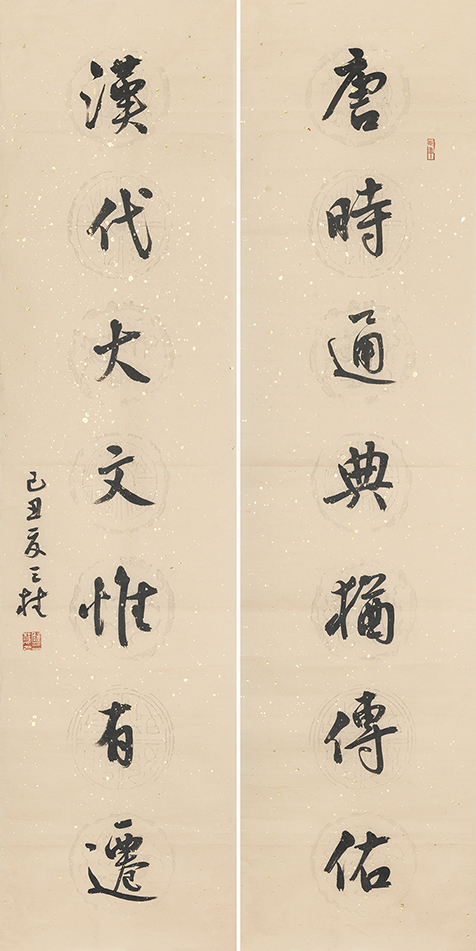 唐時通典猶傳佑
漢代大文惟有遷
己丑夏三桂